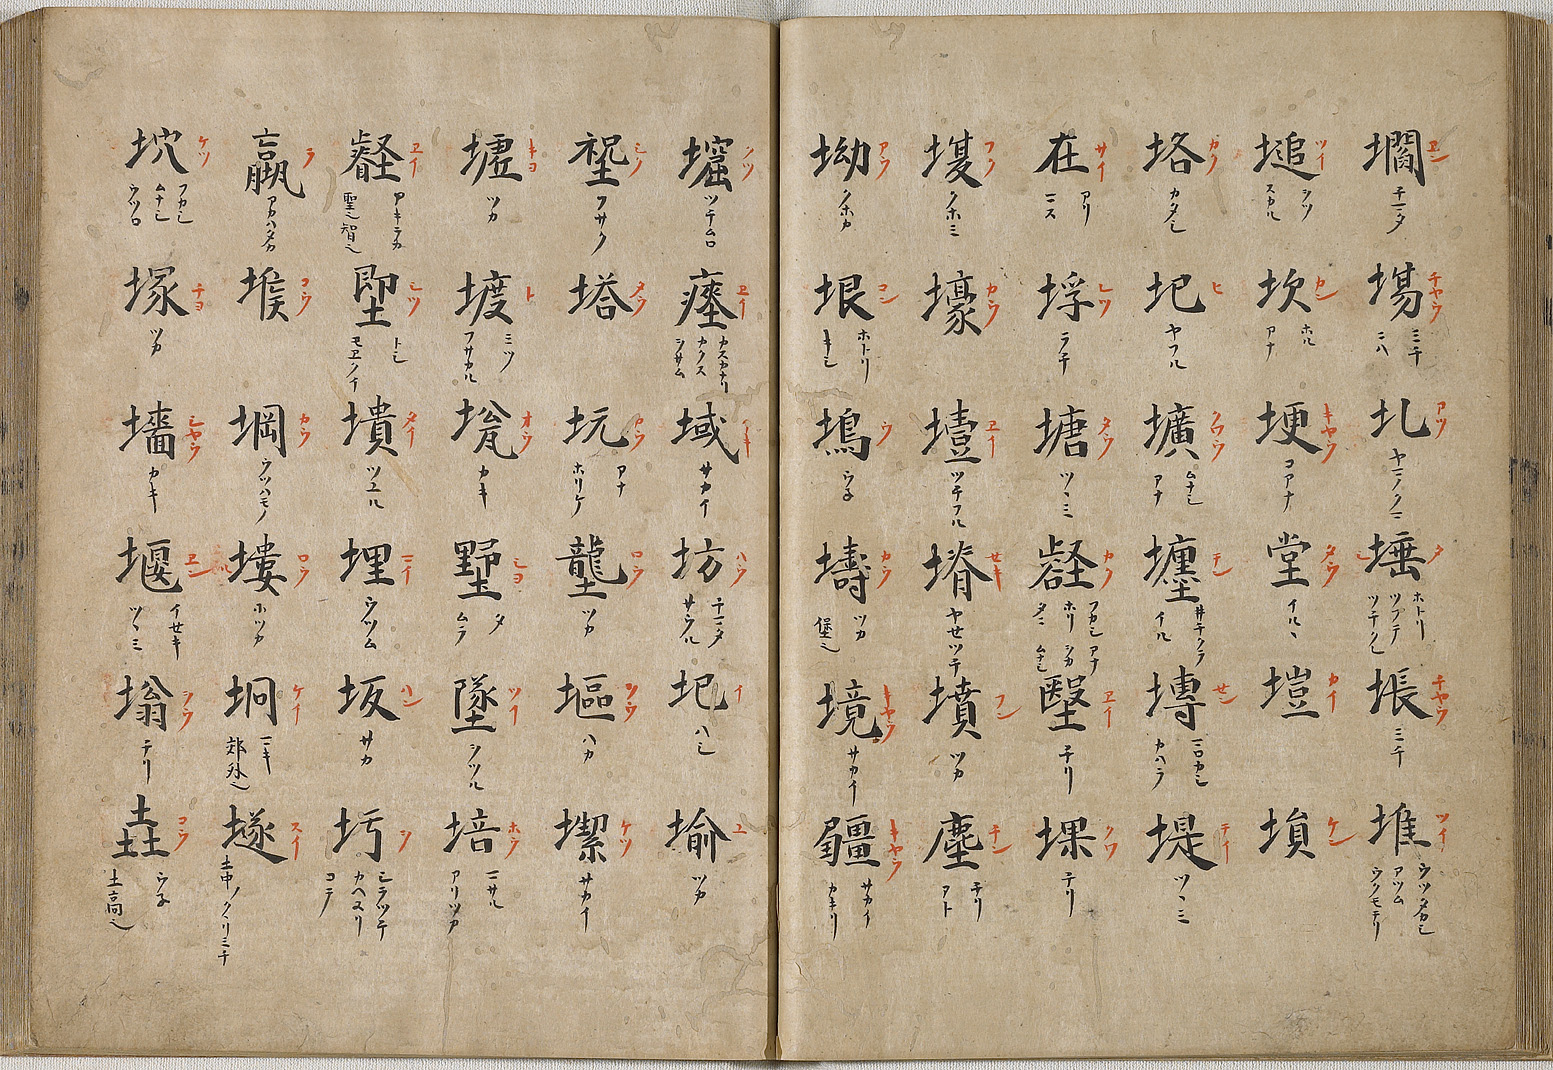 壛 ヱン チマタ
場 チヤウ ミチ ニハ
圠 アツ ヤマノクマ
埵 タ ホトリ ツフテ ツチクレ
墬 チヤウ ミチ
堆 ツイ ウツタカシ アツム ウクモチリ
塠 ツイ シツ スカル
坎 カン ホル アナ
埂 キヤウ コアナ
堂 タウ イルヽ
塏 カイ
塤 ケン
垎 カク カタシ
圮 ヒ ヤフル
壙 クワウ ムナシ アナ
壥 テン 井チクラ イル
塼 セン マロカシ カハラ
堤 テイ ツヽミ
在 サイ アリ マス
垺 ヒツ ラチ
塘 タウ ツヽミ
壑 カク フカシ アナ ホリ ツカ タニ ムナシ
堅 ヱイ チリ
堁 クワ チリ
𡍫 フク クホミ
壕 カウ
壹 ヱイ ツチフル
塉 セキ ヤセツチ
墳 フン ツカ
塵 チン チリ アト
坳 アウ クホカ
垠 コン ホトリ キシ
塢 ウ ウネ
壔 カウ ツカ 堡也
境 キヤウ サカイ
疆 キヤウ サカイ カキリ
堀 クツ ツチムロ
瘞 ヱイ カスカナリ カクス シサム
域 イキ サカイ
坊 ハウ チマタ サウル
圯 イ ハシ
堬 ユ ツカ
フサク
塔 タウ
坑 カウ アナ ホリケ
壟 ロウ ツカ
塸 ヲウ ハカ
ケツ サカイ
墟 キヨ ツカ
ト ミツ フサカル
瓮 オウ カキ
野 シヨ タ ムラ
墜 ツイ シツル
培 ホウ マサル アリツカ
ヱイ アキラカ 聖也 智也
堲 シツ トシ モヱノチ
墤 タイ ツユル
埋 マイ ウツム
坂 ハン サカ
圬 ヲ シラツチ カヘヌリ コテ
羸 ラ アカハタカ
堠 コウ
堈 カウ ウツハモノ
塿 ロウ ホツカ
坰 ケイ マキ 郊外也
ス井 土中ノクリミチ
坑 ケツ フカシ ムナシ ウツロ
塚 チヨ ツカ
墻 シヤウ カキ
堰 ヱン イセキ ツヽミ
塕 ヲウ チリ
垚 コウ ウネ 土高也